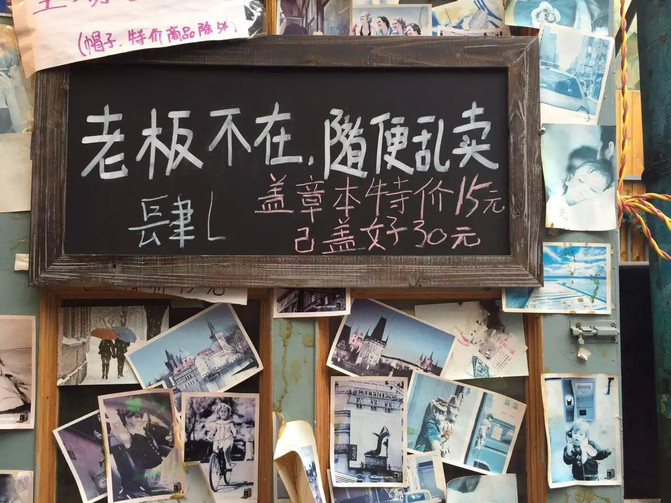 (帽子、特价商品除外)
老板不在,隨便乱卖
肆L
盖章本特价15元
己盖好30元